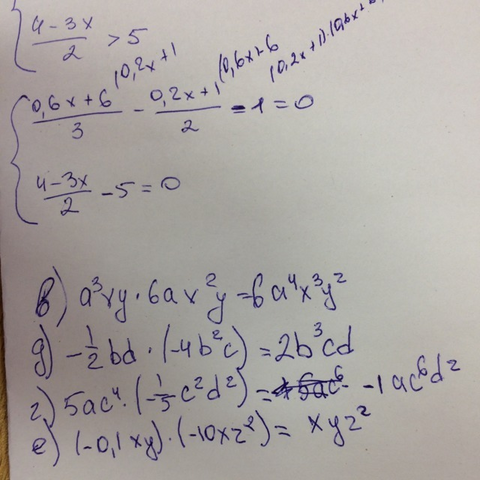 { (4-3x)/2 > 5
{ (0,6x+6)/3 (0,2x+1 - (0,2x+1)/2 (0,6x+6 - 1 = 0 (0,2x+1)·(0,6x+
(4-3x)/2 - 5 = 0
в) a³xy · 6ax²y = 6a⁴x³y²
д) -1/2 bd · (-4b²c) = 2b³cd
г) 5ac⁴ · (-1/5 c²d²) = -1ac⁶d²
е) (-0,1xy) · (-10xz²) = xyz²